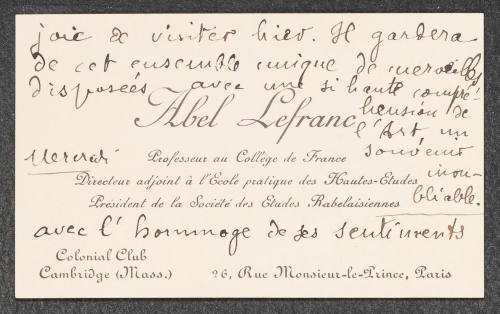 joie de visiter hier. Il gardera
de cet ensemble unique de merveilles
disposées avec une si haute compré-
hension de
l'Art un
souvenir
inou-
bliable.
Abel Lefranc
Mercredi
Professeur au Collège de France
Directeur adjoint à l'Ecole pratique des Hautes-Etudes
Président de la Société des Etudes Rabelaisiennes
avec l'hommage de ses sentiments
Colonial Club
Cambridge (Mass.)
26, Rue Monsieur-le-Prince, Paris